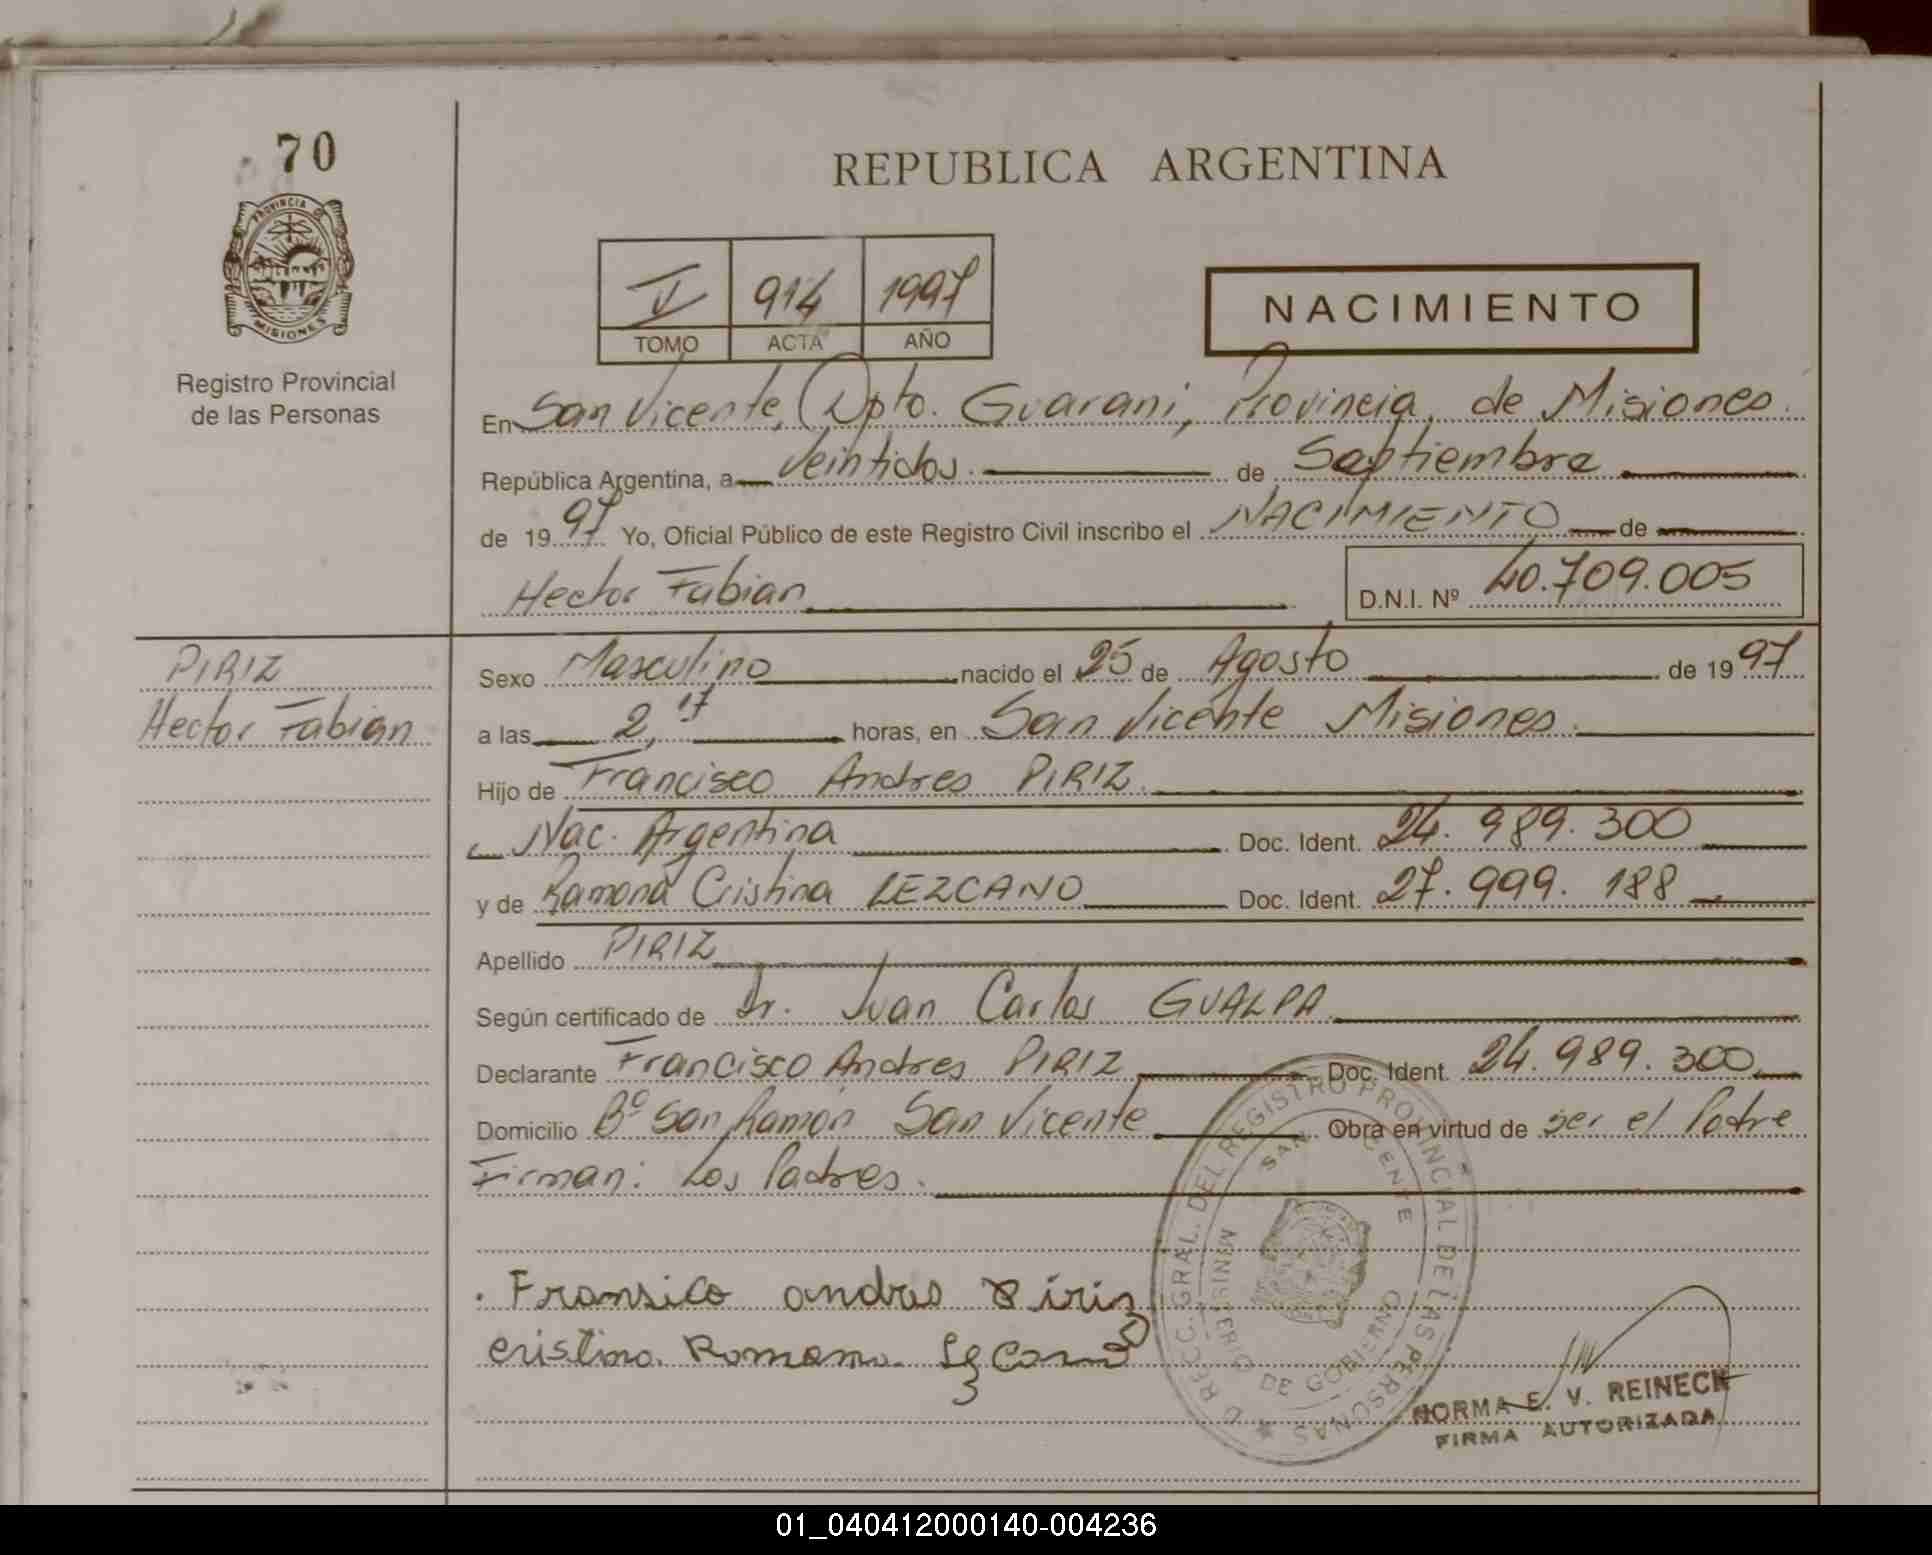 70
PROVINCIA DE
MISIONES
Registro Provincial
de las Personas
REPUBLICA ARGENTINA
V 914 1997
TOMO ACTA AÑO
NACIMIENTO
En San Vicente, Dpto. Guarani, Provincia de Misiones
República Argentina, a veintidos de Septiembre
de 1997 Yo, Oficial Público de este Registro Civil inscribo el NACIMIENTO de
Hector Fabian D.N.I. Nº 40.709.005
PIRIZ
Hector Fabian
Sexo Masculino nacido el 25 de Agosto de 1997
a las 2,17 horas, en San Vicente Misiones
Hijo de Francisco Andres PIRIZ
Nac. Argentina Doc. Ident. 24.989.300
y de Ramona Cristina LEZCANO Doc. Ident. 27.999.188
Apellido PIRIZ
Según certificado de Dr. Juan Carlos GUALPA
Declarante Francisco Andres PIRIZ Doc. Ident. 24.989.300
Domicilio Bº San Ramón San Vicente Obra en virtud de ser el Padre
Firman: Los Padres.
Fransico andres Piriz
cristina Romana Lezcano
D RECC. GRAL. DEL REGISTRO PROVINCIAL DE LAS PERSONAS
SAN VICENTE
MINISTERIO DE GOBIERNO
NORMA E. V. REINECK
FIRMA AUTORIZADA
01_040412000140-004236